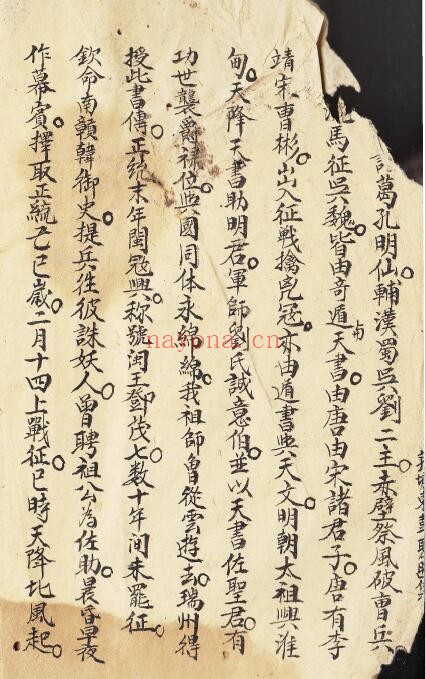 葛孔明仙輔漢蜀吳劉二主赤壁祭風破曹兵
馬征吳魏皆由奇遁与天書由唐由宋諸君子唐有李
靖宋曹彬出入征戰擒兇冦亦由遁書與天文明朝太祖興淮
甸天降天書助明君軍師劉氏誠意伯並以天書佐聖君有
功世襲爵禄位與國同体永綿綿我祖師曾從雲遊去瑞州得
授此書傳正統末年閩冦興称號閩王鄧茂七数十年间未罷征
欽命南贛韓御史提兵往彼誅妖人曾聘祖公為佐助晨昏早夜
作幕賓擇取正統己巳歲二月十四上戰征巳時天降北風起
nayona.cn